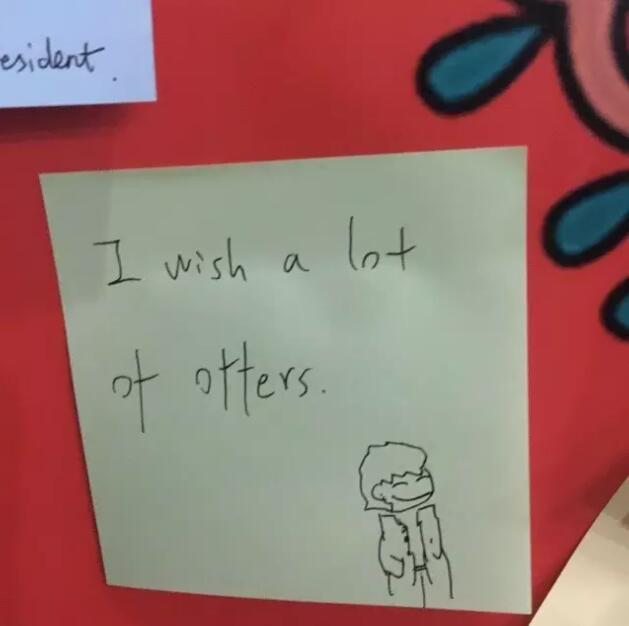 esident.
I wish a lot
of otters.